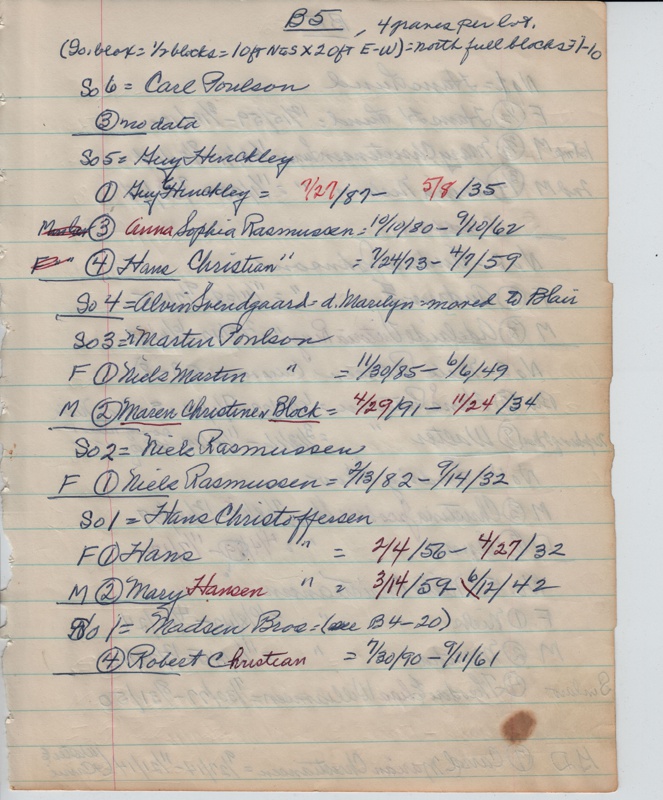 B5, 4 panes per lot.
(So. = 1/2 blocks = 10ft N&S X 20ft E-W) = North full blocks 7-10
So 6 = Carl Poulson
③ no data
So 5 = Guy Henckley
① Guy Henckley = 7/27/87 - 5/8/35
③ Anna Sophia Rasmussen = 10/10/80 - 9/10/62
④ Hans Christian " = 7/24/73 - 4/7/59
So 4 = Alvin Svendgaard = d. Marilyn = moved to Blair
So 3 = Martin Poulson
F ① Niels Martin " = 11/30/85 - 6/6/49
M ② Maren Christine Block = 4/29/91 - 11/24/34
So 2 = Niels Rasmussen
F ① Niels Rasmussen = 2/13/82 - 9/14/32
So 1 = Hans Christoffersen
F ① Hans " = 2/4/56 - 4/27/32
M ② Mary Hansen " = 3/14/59 6/12/42
No 1 = Madsen Bros = (see B4-20)
④ Robert Christian = 7/30/90 - 9/11/61